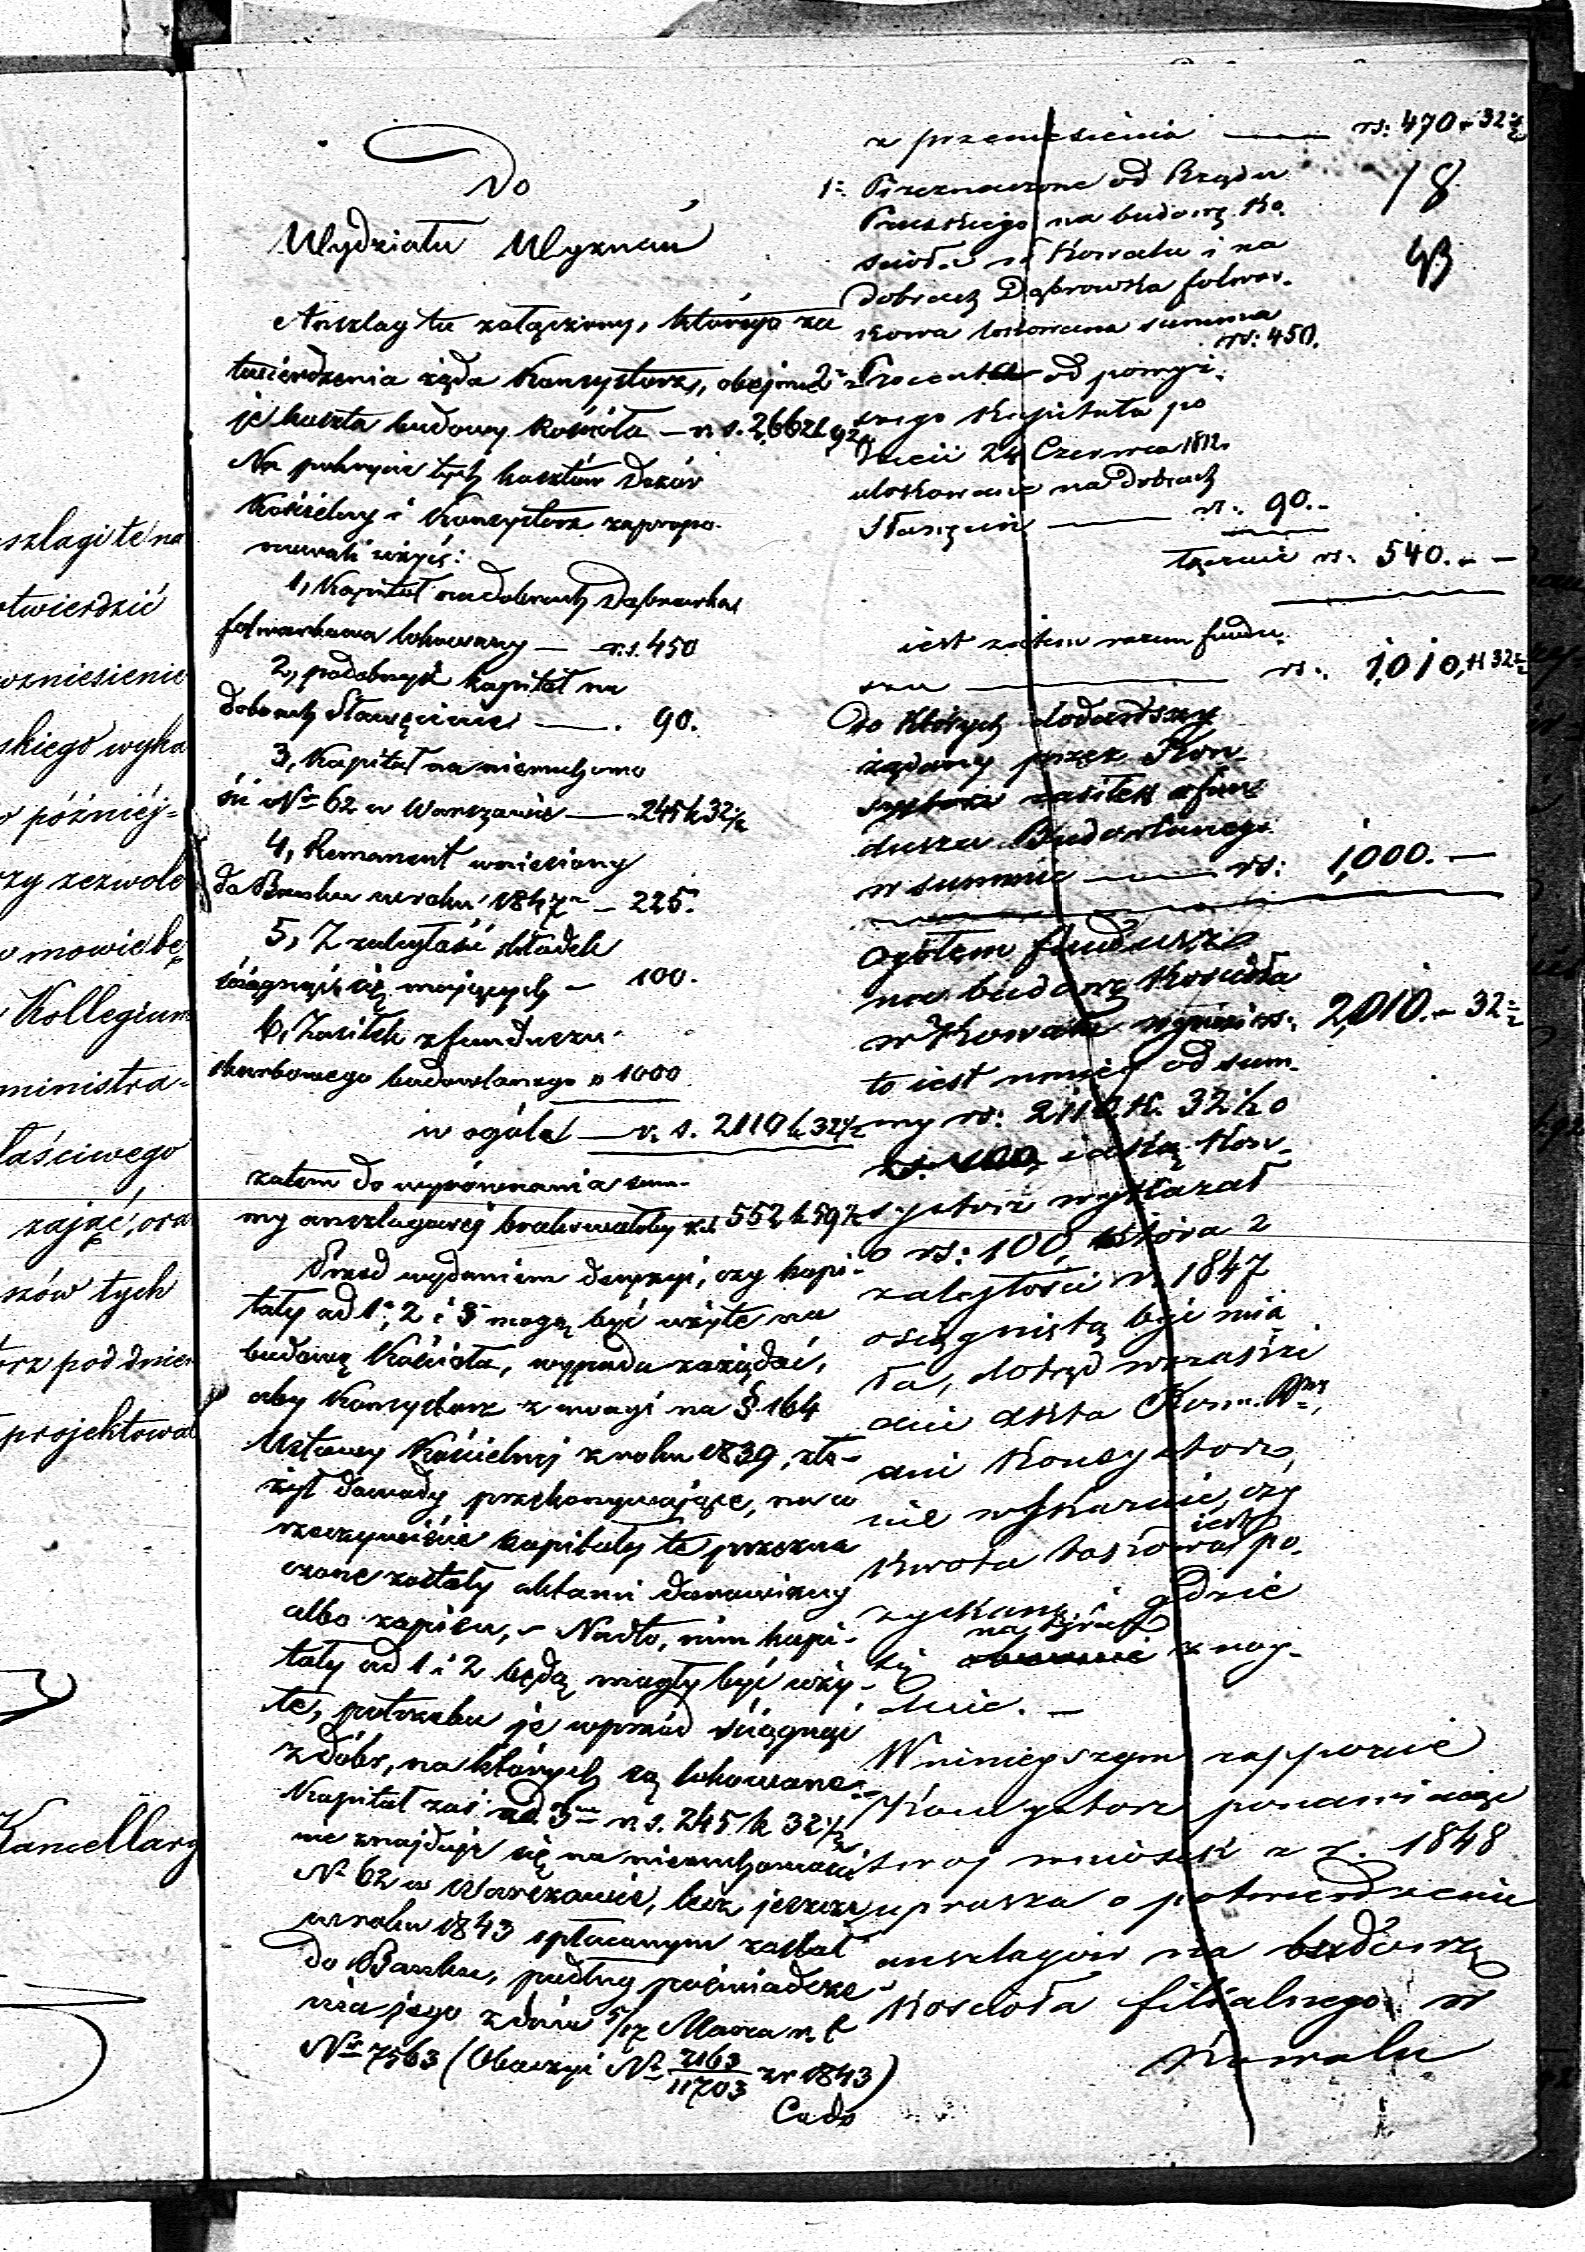 szlagi te na
twierdzić
wzniesienie
skiego wyka
później-
zy zezwole
mowie bę
Kollegium
ministra-
łaściwego
zająć, ora
szów tych
orz pod dniem
projektował
Kancellary
Do
Wydziału Wyznań
Anszlag tu załączony, którego za
twierdzenia żąda Konsystorz, obejmu
je koszta budowy Kościoła — rs. 2,662 k 92
Na pokrycie tych kosztów Dozór
Kościelny i Konsystorz zapropo-
nowali użyć:
1, Kapitał na dobrach Dąbrówka
folwarkowa lokowany — rs. 450
2, podobnyż kapitał na
dobrach Sławęcinie — . 90.
3, Kapitał na nieruchomo
ści N 62 w Warszawie — 245 k 32 1/2
4, Remanent wniesiony
do Banku w roku 1847 — 225.
5, Z zaległości składek
ściągnąć się mających — 100.
6, Zasiłek z funduszu
skarbowego budowlanego " 1000
w ogóle — r. s. 2110 k 32 1/2
zatem do wyrównania sum-
my anszlagowej brakowałoby rs. 552 k 59 1/2
Przed wydaniem decyzyi, czy kapi-
tały ad 1, 2 i 3 mogą być użyte na
budowę Kościoła, wypada zażądać,
aby Konsystorz z uwagi na § 164
Ustawy Kościelnej z roku 1839, zło-
żył dowody przekonywające,
rzeczywiście kapitały te przezna
czone zostały aktami darowizny
albo zapisu, — Nadto, nim kapi-
tały ad 1 i 2 będą mogły być uży-
te, potrzeba je wprzód ściągnąć
z dóbr, na których są lokowane.
Kapitał zaś ad 3 rs. 245 k 32 1/2
nie znajduje się na nieruchomości
N 62 w Warszawie, lecz jeszcze
w roku 1843 spłaconym został
do Banku, podług poświadcze-
nia jego z dnia 5/17 Marca r. b
N 7563 (Obaczyć N 2163/11703 z r 1843)
Cado
z przeniesienia — rs: 470 - 32 1/2
18
1. Przeznaczone od Rządu
Pruskiego na budowę Ko-
ścioła w Kowalu i na
dobrach Dąbrowka folwar-
kowa lokowana summa
rs: 450.
2 Procenta od powyż-
szego Kapitału po
dzień 24 Czerwca 1812
ulokowane na dobrach
Sławęcin — rs. 90.-
łącznie rs. 540. - -
jest zatem razem fundu-
szu — rs. 1,010, k 32 1/2
Do których dodawszy
żądany przez Kon-
systorz zasiłek z fun
duszu Budowlanego
w summie — rs: 1,000. —
Ogółem funduszu
na budowę Kościoła
w Kowalu wynosi rs. 2,010. - 32 1/2
to jest mniej od sum-
my rs: 2110 k. 32 1/2 o
rs. 100, jaką Kon-
systorz wykazał
o rs: 100, która z
zaległości r. 1847
osiągniętą być mia
ła, dotąd wszakże
ani akta Kom. Rz,
ani Konsystorz,
nie wskazuje, czy
kwota takowa jest po-
zyskaną i gdzie
się znaj-
duje. —
W niniejszym rapporcie
Konsystorz ponawiając
swoj wniosek z r. 1848
uprasza o potwierdzenie
anszlagów na budowę
Kościoła filialnego w
Kowalu